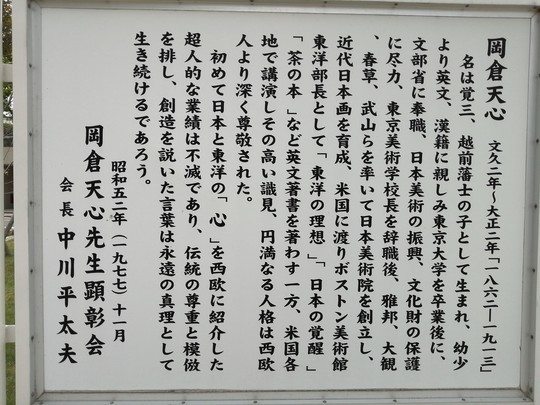 岡倉天心　文久二年〜大正二年「一八六二―一九一三」
名は覚三、越前藩士の子として生まれ、幼少
より英文、漢籍に親しみ東京大学を卒業後に、
文部省に奉職、日本美術の振興、文化財の保護
に尽力、東京美術学校長を辞職後、雅邦、大観
、春草、武山らを率いて日本美術院を創立し、
近代日本画を育成、米国に渡りボストン美術館
東洋部長として「東洋の理想」「日本の覚醒」
「茶の本」など英文著書を著わす一方、米国各
地で講演しその高い識見、円満なる人格は西欧
人より深く尊敬された。
初めて日本と東洋の「心」を西欧に紹介した
超人的な業績は不滅であり、伝統の尊重と模倣
を排し、創造を説いた言葉は永遠の真理として
生き続けるであろう。
昭和五二年（一九七七）十一月
岡倉天心先生顕彰会
会長　中川平太夫